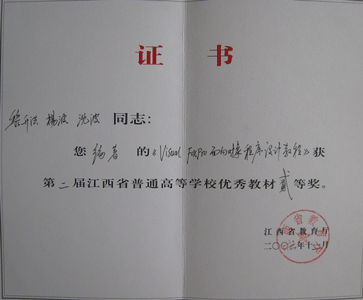 证书
黎升洪 杨波 沈波 同志：
您 编著 的《Visual FoxPro面向对象程序设计教程》获
第二届江西省普通高等学校优秀教材贰等奖。
江西省教育厅
二〇〇六年十二月